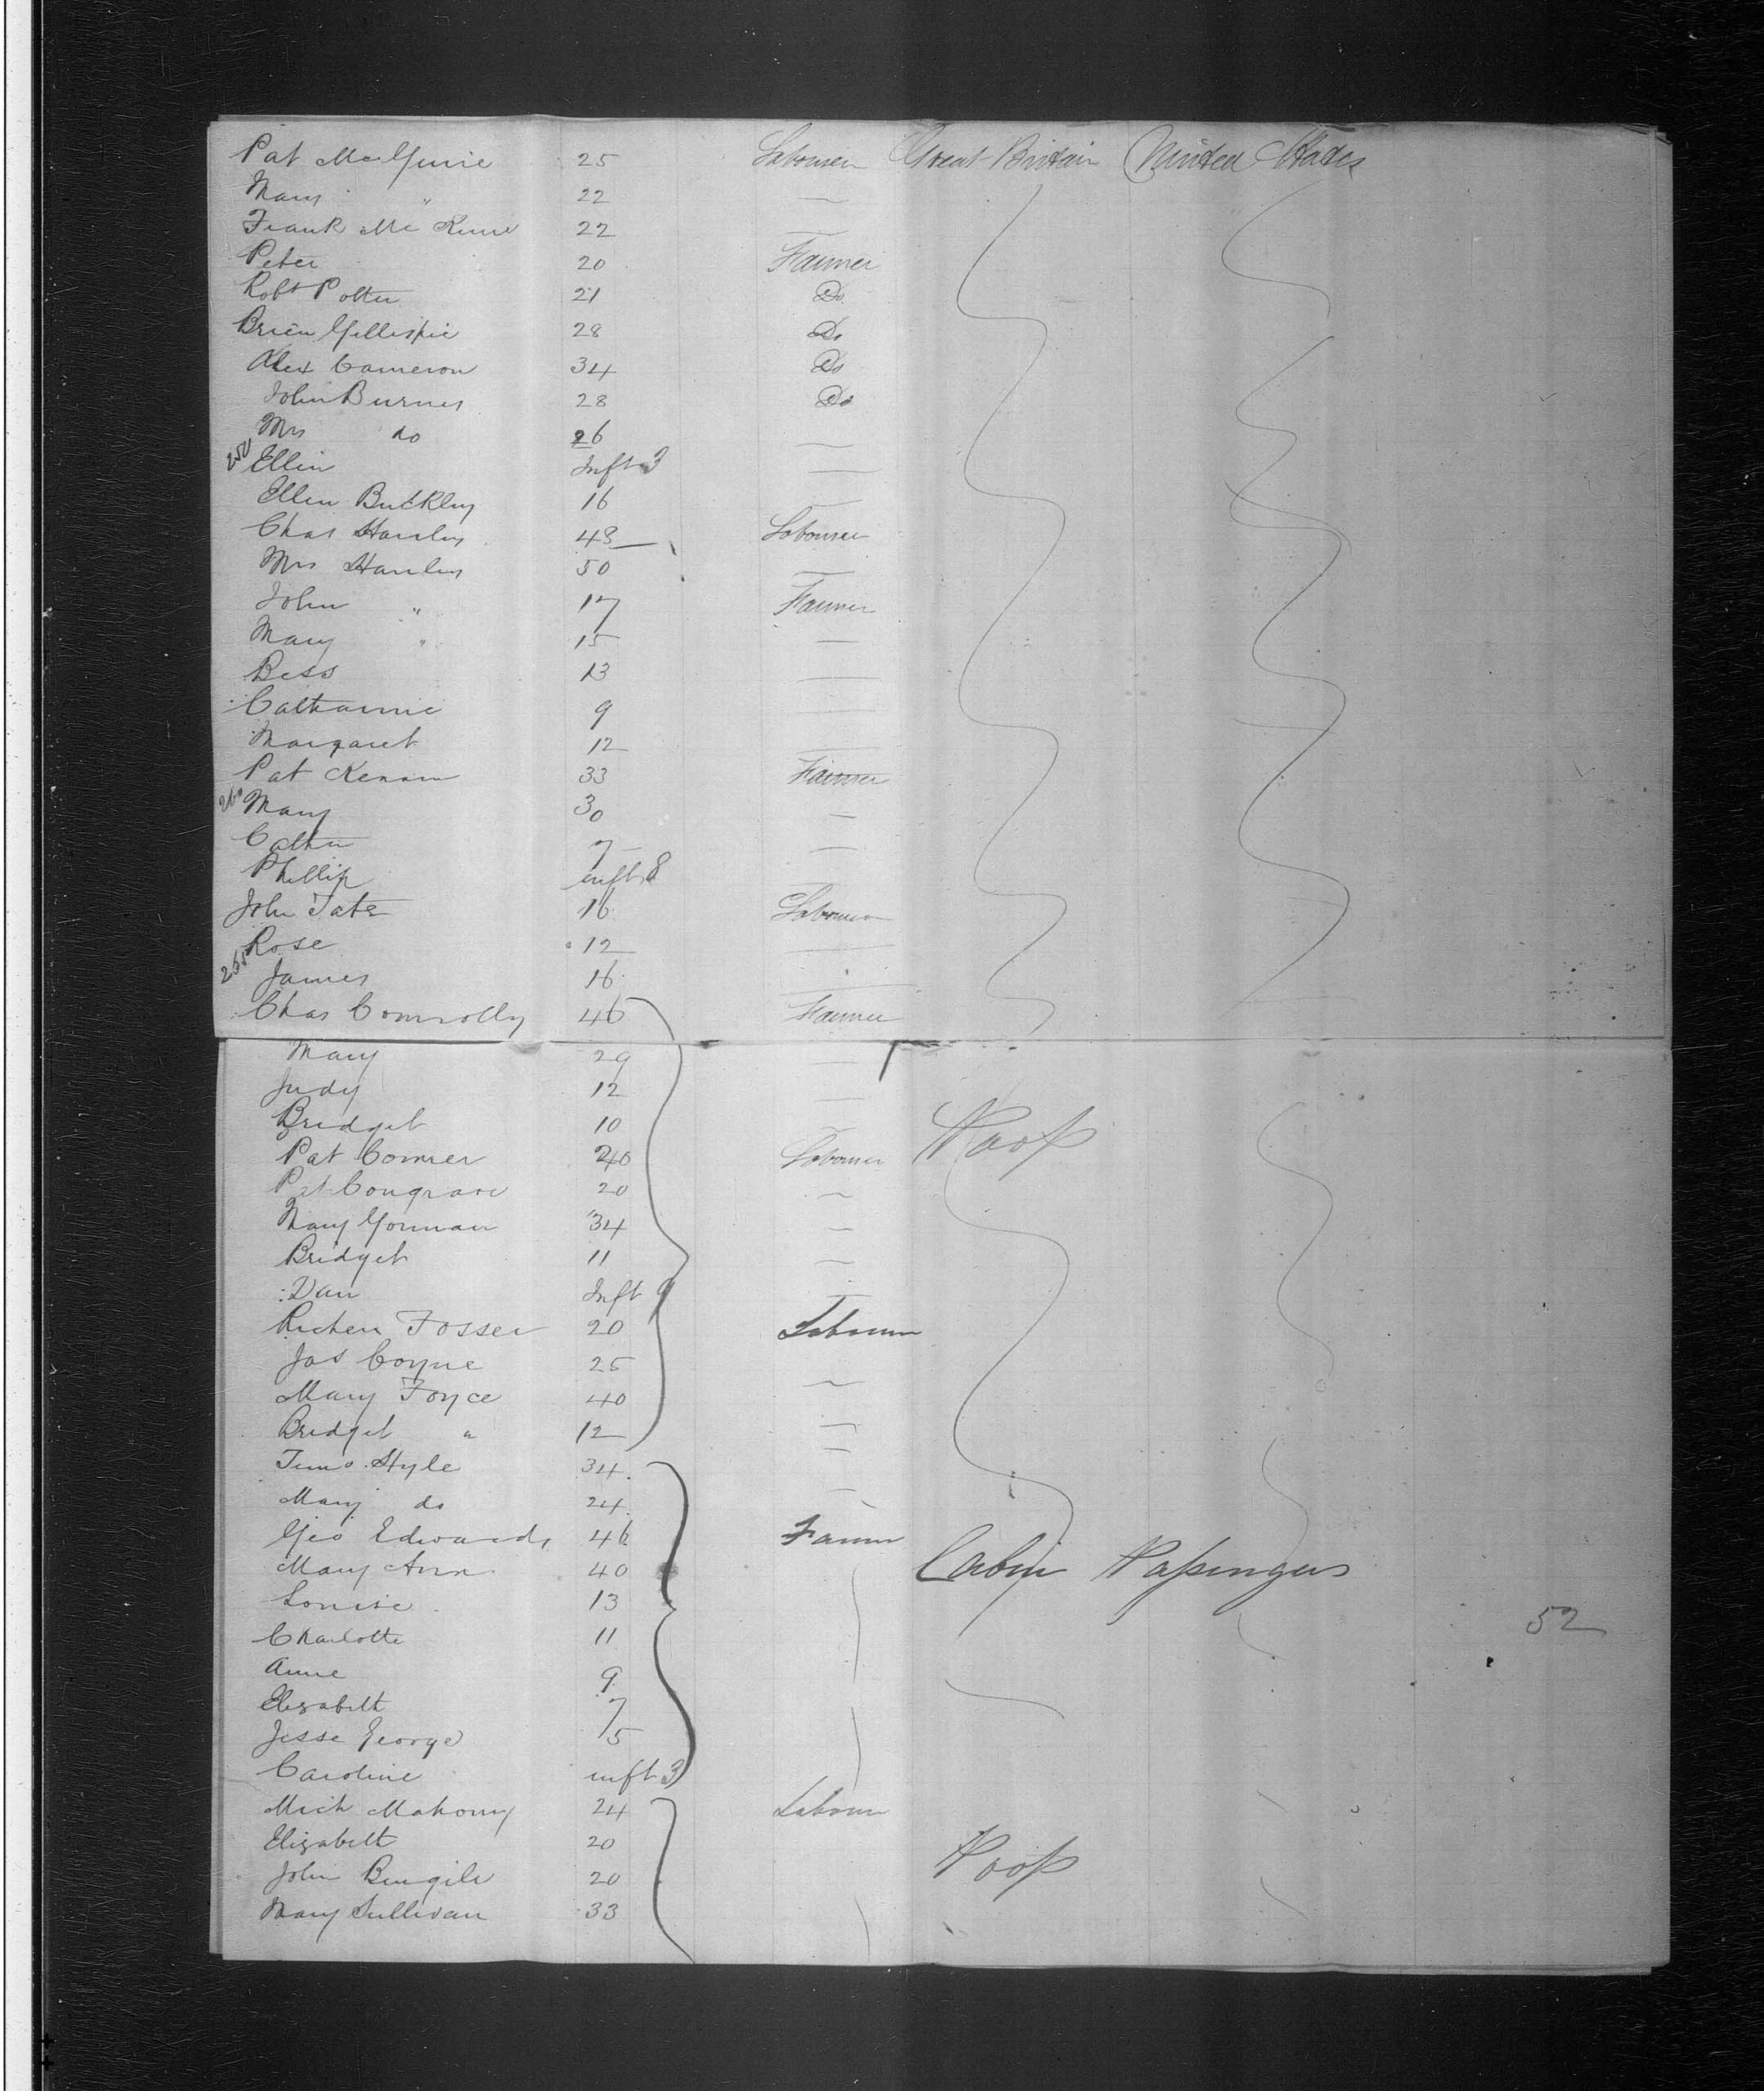 Pat McGuire 25 Labourer Great Britain United States
Mary " 22 —
Frank Mc 22 —
Peter 20 Farmer
Robt Potter 21 Do
Brien Gillespie 28 Do
Alex Cameron 34 Do
John Burnes 28 Do
Mrs do 26 —
250 Ellen Inft 3 —
Ellen Buckley 16 —
Chas Hanley 48 Labourer
Mrs Hanley 50 —
John " 17 Farmer
Mary " 15 —
Bess 13 —
Catharine 9 —
Margaret 12 —
Pat 33 Farmer
260 Mary 30 —
Cathn 7 —
Phillip inft 8 —
John Tate 16 Labourer
Rose 12 —
265 James 16 —
Chas Connolly 46 Farmer
Mary 29 —
Judy 12 —
Bridget 10 — Poop
Pat Conner 20 Labourer
Pat Congrave 20 —
Mary Gorman 34 —
Bridget 11 —
Dan Inft 9 —
Fosser 20 Labourer
Jas Coyne 25 —
Mary Joyce 40 —
Bridget " 12 —
Timo Hyle 34 —
Mary do 24 —
Geo Edwards 46 Farmer
Mary Ann 40 Cabin Passengers
Louise 13
Charlotte 11 52
Anne 9
Elizabeth 7
Jesse George 5
Caroline inft 3
Mich Mahony 24 Labourer
Elizabeth 20 Poop
John 20
Mary Sullivan 33